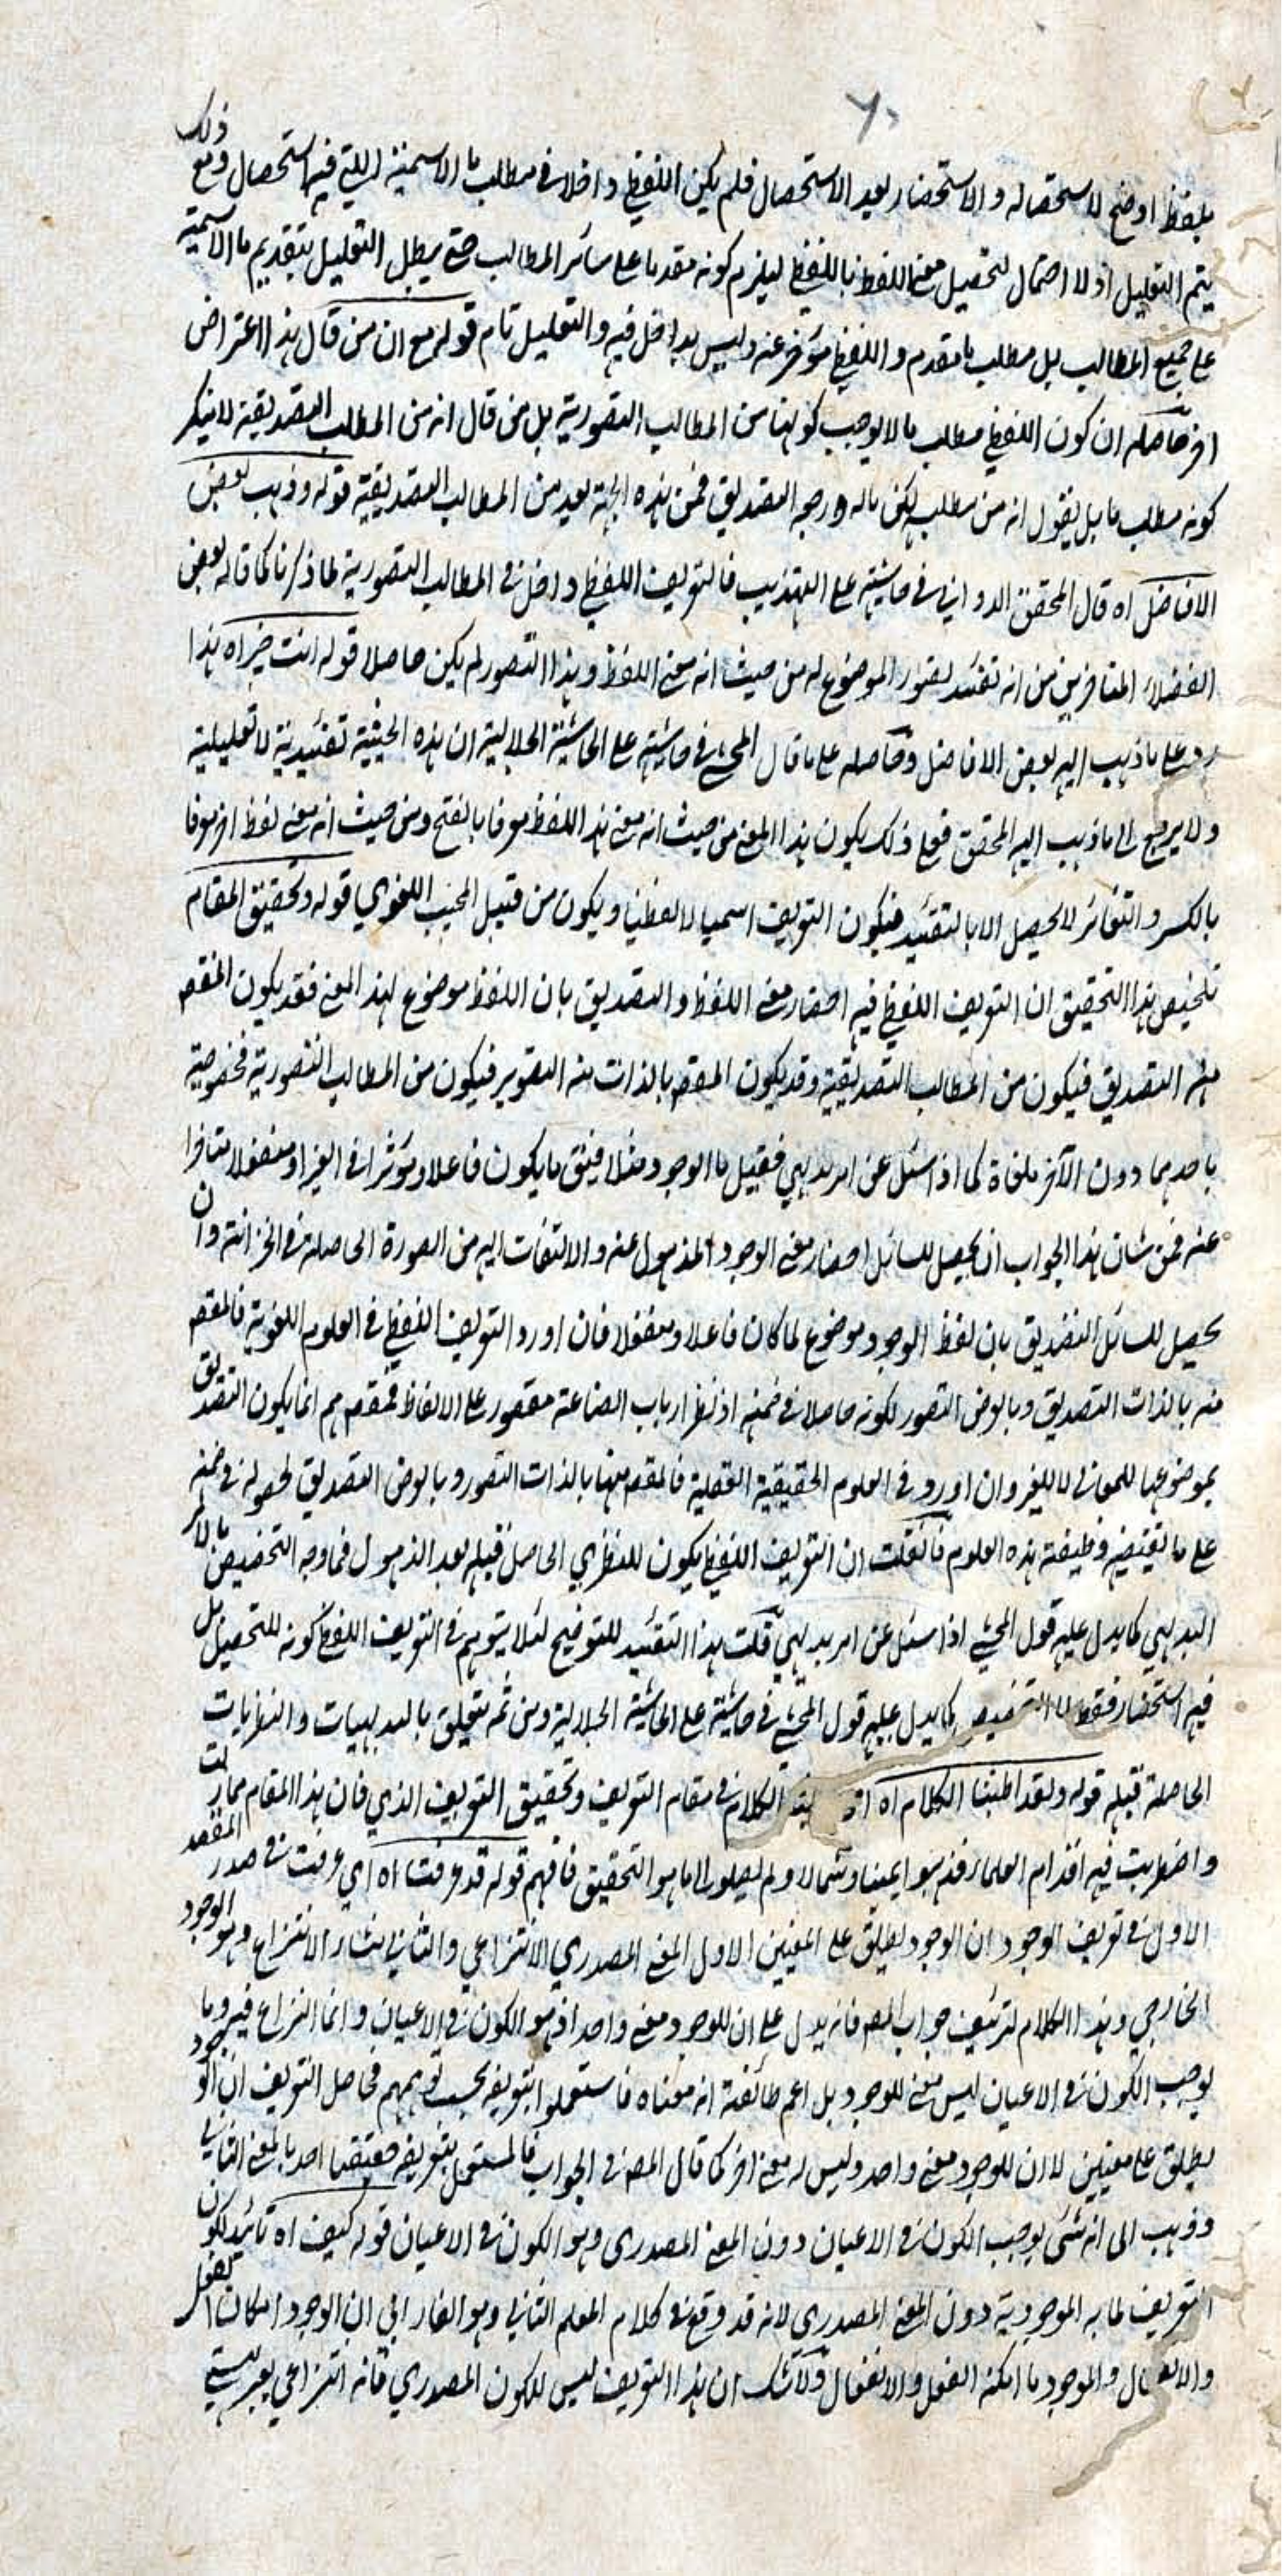 ٦٠
بلفظ اوضح لاستحصاله والاستحضار بعد الاستحصال فلم يكن اللفظي داخلا في مطلب ما الاسمية التي فيها استحصال ومع ذلك
يتم التعليل اذ لا احتمال لتحصيل معنى اللفظ باللفظي ليلزم كونه مقدما على سائر المطالب حتى يبطل التعليل بتقديم ما الاسمية
على جميع المطالب بل مطلب ما مقدم واللفظي مؤخر عنه وليس بداخل فيه والتعليل تام قوله مع ان من قال هذا اعتراض
اخر حاصله ان كون اللفظي مطلب ما لا يوجب كونها من المطالب التصورية بل من قال انه من المطالب التصديقية لا ينكر
كونه مطلب ما بل يقول انه من مطلب لكن ماله ورجه التصديق فمن هذه الجهة يعد من المطالب التصديقية قوله وذهب بعض
الافاضل اه قال المحقق الدواني في حاشيته على التهذيب فالتعريف اللفظي داخل في المطالب التصورية لما ذكرنا كما قاله بعض
الفضلاء المتاخرين من انه تفيد تصور الموضوع له من حيث انه معنى اللفظ وهذا التصور لم يكن حاصلا قوله انت خبير اه هذا
رد على ما ذهب اليه بعض الافاضل وحاصله على ما قال المحشي في حاشيته على الحاشية الجلالية ان هذه الحيثية تقييدية لا تعليلية
ولا يرجع الى ما ذهب اليه المحقق فعلى ذلك يكون هذا المعنى من حيث انه معنى هذا اللفظ معرفا بالفتح ومن حيث انه معنى لفظ اخر معرفا
بالكسر والتغائر لا يحصل الا بالتقييد فيكون التعريف اسميا لا لفظيا ويكون من قبيل البحث اللغوي قوله وتحقيق المقام
تلخيص هذا التحقيق ان التعريف اللفظي فيه احضار معنى اللفظ والتصديق بان اللفظ موضوع لهذا المعنى فقد يكون المقصم
منه التصديق فيكون من المطالب التصديقية وقد يكون المقصم بالذات منه التصوير فيكون من المطالب التصورية فخصوصية
باحدهما دون الآخر ملغاة كما اذا سئل عن امر بديهي فقيل ما الوجود مثلا فيق ما يكون فاعلا ومؤثرا في الغير او منفعلا متاثرا
عنه فمن شان هذا الجواب ان يحصل للسائل احضار معنى الوجود المذهول عنه والالتفات اليه من الصورة الحاصلة في الخزانة وان
يحصل للسائل التصديق بان لفظ الوجود موضوع لما كان فاعلا ومنفعلا فان اورد التعريف اللفظي في العلوم اللغوية فالمقصم
منه بالذات التصديق وبالعرض التصور لكونه حاصلا في ضمنه اذ نظر ارباب الصناعة مقصور على الالفاظ فمقصمهم انما يكون التصديق
بموضوعها للمعاني لا للغير وان اورد في العلوم الحقيقية العقلية فالمقصم منها بالذات التصور وبالعرض التصديق لحصوله في ضمنه
على ما تقتضيه وظيفة هذه العلوم فان قلت ان التعريف اللفظي يكون للنظري الحاصل قبله بعد الذهول فما وجه التخصيص بالامر
البديهي كما يدل عليه قول المحشي اذا سئل عن امر بديهي قلت هذا التقييد للتوضيح لئلا يتوهم في التعريف اللفظي كونه للتحصيل بل
فيه استحضار فقط لا التخصيص كما يدل عليه قول المحشي في حاشيته على الحاشية الجلالية ومن ثم يتعلق بالبديهيات والنظريات
الحاصلة قبله قوله ولقد اطنبنا الكلام اه الكلام في مقام التعريف وتحقيق التعريف الذي فان هذا المقام مما زلت
واضطربت فيه اقدام العلماء فذهبوا يمينا وشمالا ولم يصلوا الى ما هو التحقيق فافهم قوله قد عرفت اه اي عرفت في صدر المقصد
الاول في تعريف الوجود ان الوجود يطلق على المعنيين الاول المعنى المصدري الانتزاعي والثاني منشاء الانتزاع وهو الوجود
الخارجي وهذا الكلام لتزئيف جواب المصم فانه يدل على ان للوجود معنى واحدا وهو الكون في الاعيان وانما النزاع فيه وما
يوجب الكون في الاعيان ليس معنى للوجود بل زعم طائفة انه معناه فاستعملوا بتعريفه بحسب توهمهم فحاصل التعريف ان الوجود
يطلق على معنيين لا ان للوجود معنى واحد وليس له معنى اخر كما قال المصم في الجواب فالمستعمل بتعريفه معتقدا احد بالمعنى الثاني
وذهب الى انه شيء يوجب الكون في الاعيان دون المعنى المصدري وهو الكون في الاعيان قوله كيف اه تائيد لكون
التعريف لما به الموجودية دون المعنى المصدري لانه قد وقع في كلام المعلم الثاني وهو الفارابي ان الوجود امكان الفعل
والانفعال والموجود ما امكنه الفعل والانفعال ولا شك ان هذا التعريف ليس للكون المصدري فانه انتزاعي